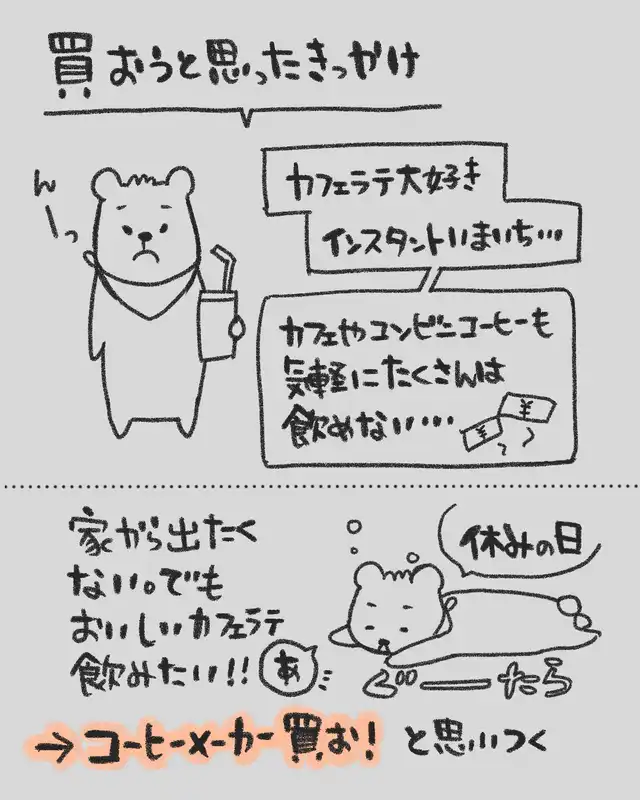 買おうと思ったきっかけ
んーっ
カフェラテ大好き
インスタントいまいち…
カフェやコンビニコーヒーも
気軽にたくさんは
飲めない…
¥
¥
家から出たく
ない。でも
おいしいカフェラテ
飲みたい!!
あ
休みの日
ぐーたら
→コーヒーメーカー買お! と思いつく